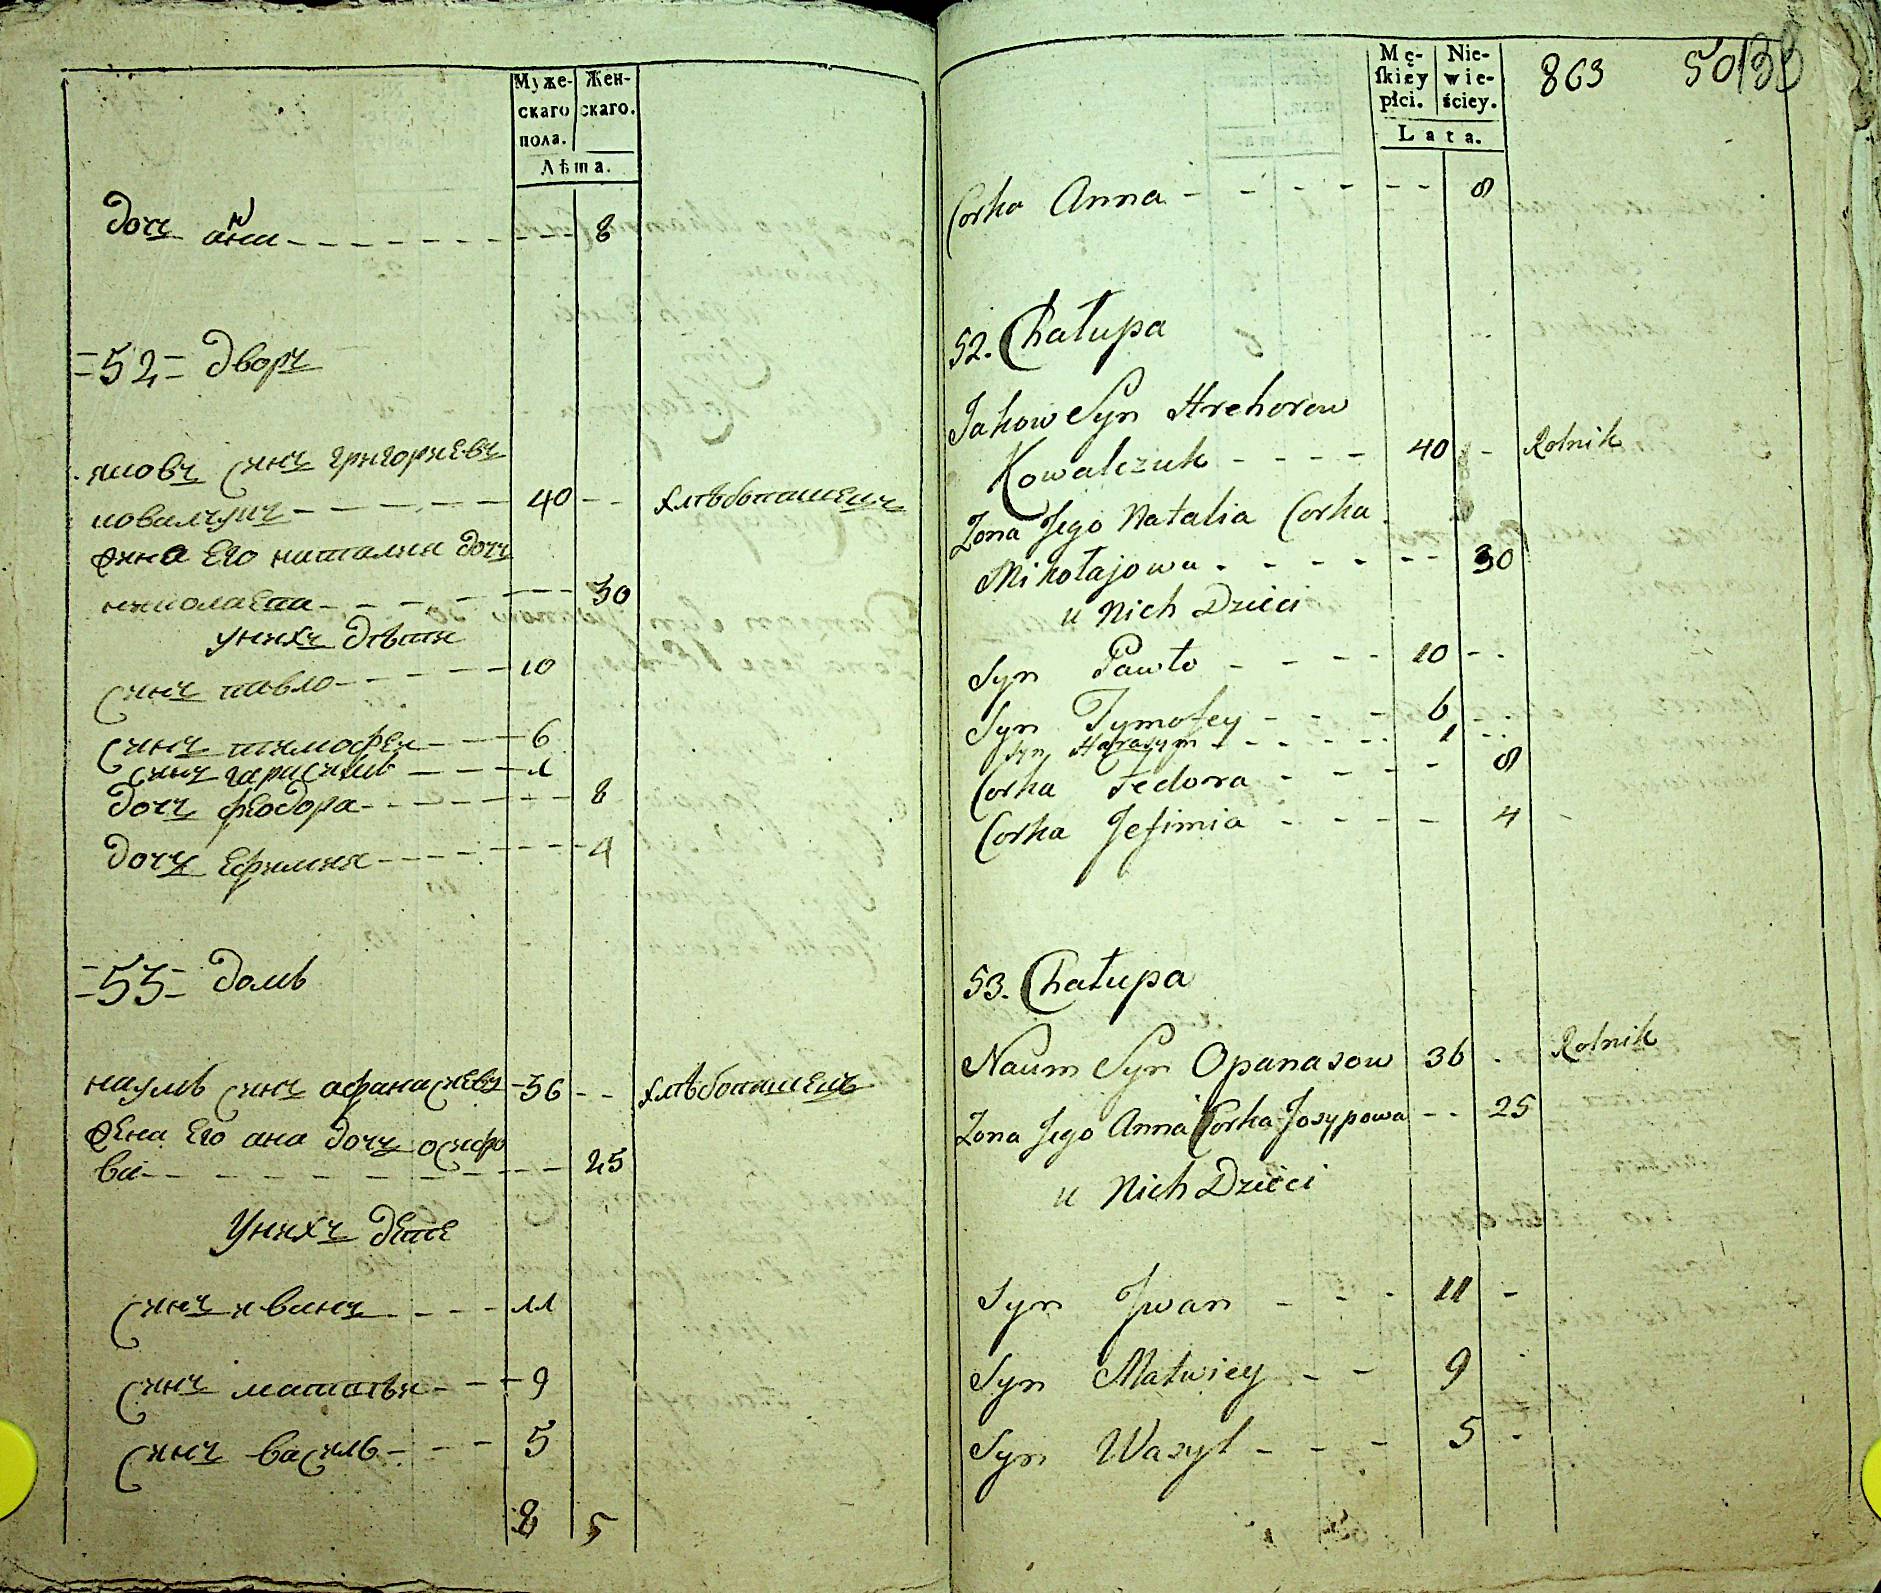 Муже-
скаго
пола.
Жен-
скаго.
Лѣта.
дочъ анна - - - 8
=52= дворъ
яковъ синъ григориевъ
ковалчукъ - - - 40 - - хлѣбопашецъ
жина его наталия дочъ
николаева - - - 30
унихъ дѣти
синъ павло - - - 10
синъ тимофеи - - - 6
синъ гарисимъ - - - 1
дочъ феодора - - - 8
дочъ ефимия - - - 4
=53= домъ
наумъ синъ афанасиевъ - 36 - - хлѣбопашецъ
жена его ана дочъ осифо
ва - - - 25
Унихъ дете
синъ иванъ - - - 11
синъ матвѣи - - - 9
синъ василь - - - 5
8 5
Mę-
ſkiey
płci.
Nie-
wie-
ściey.
Lata.
863 50 138
Corka Anna - - - 8
52. Chałupa
Jakow Syn Hrehorow
Kowalczuk - - - - 40 - Rolnik
Żona Jego Natalia Corka
Mikołajowa - - - 30
u Nich Dzieci
Syn Pawło - - - - 10 - -
Syn Tymofey - - - 6 - -
Syn Harasym - - - 1 - -
Corka Fedora - - - - 8
Corka Jefimia - - - - 4 -
53. Chałupa
Naum Syn Opanasow 36 - Rolnik
Żona Jego Anna Corka Josypowa - - 25
u Nich Dzieci
Syn Jwan - - - 11 -
Syn Matwiey - - 9 -
Syn Wasyl - - - 5 -